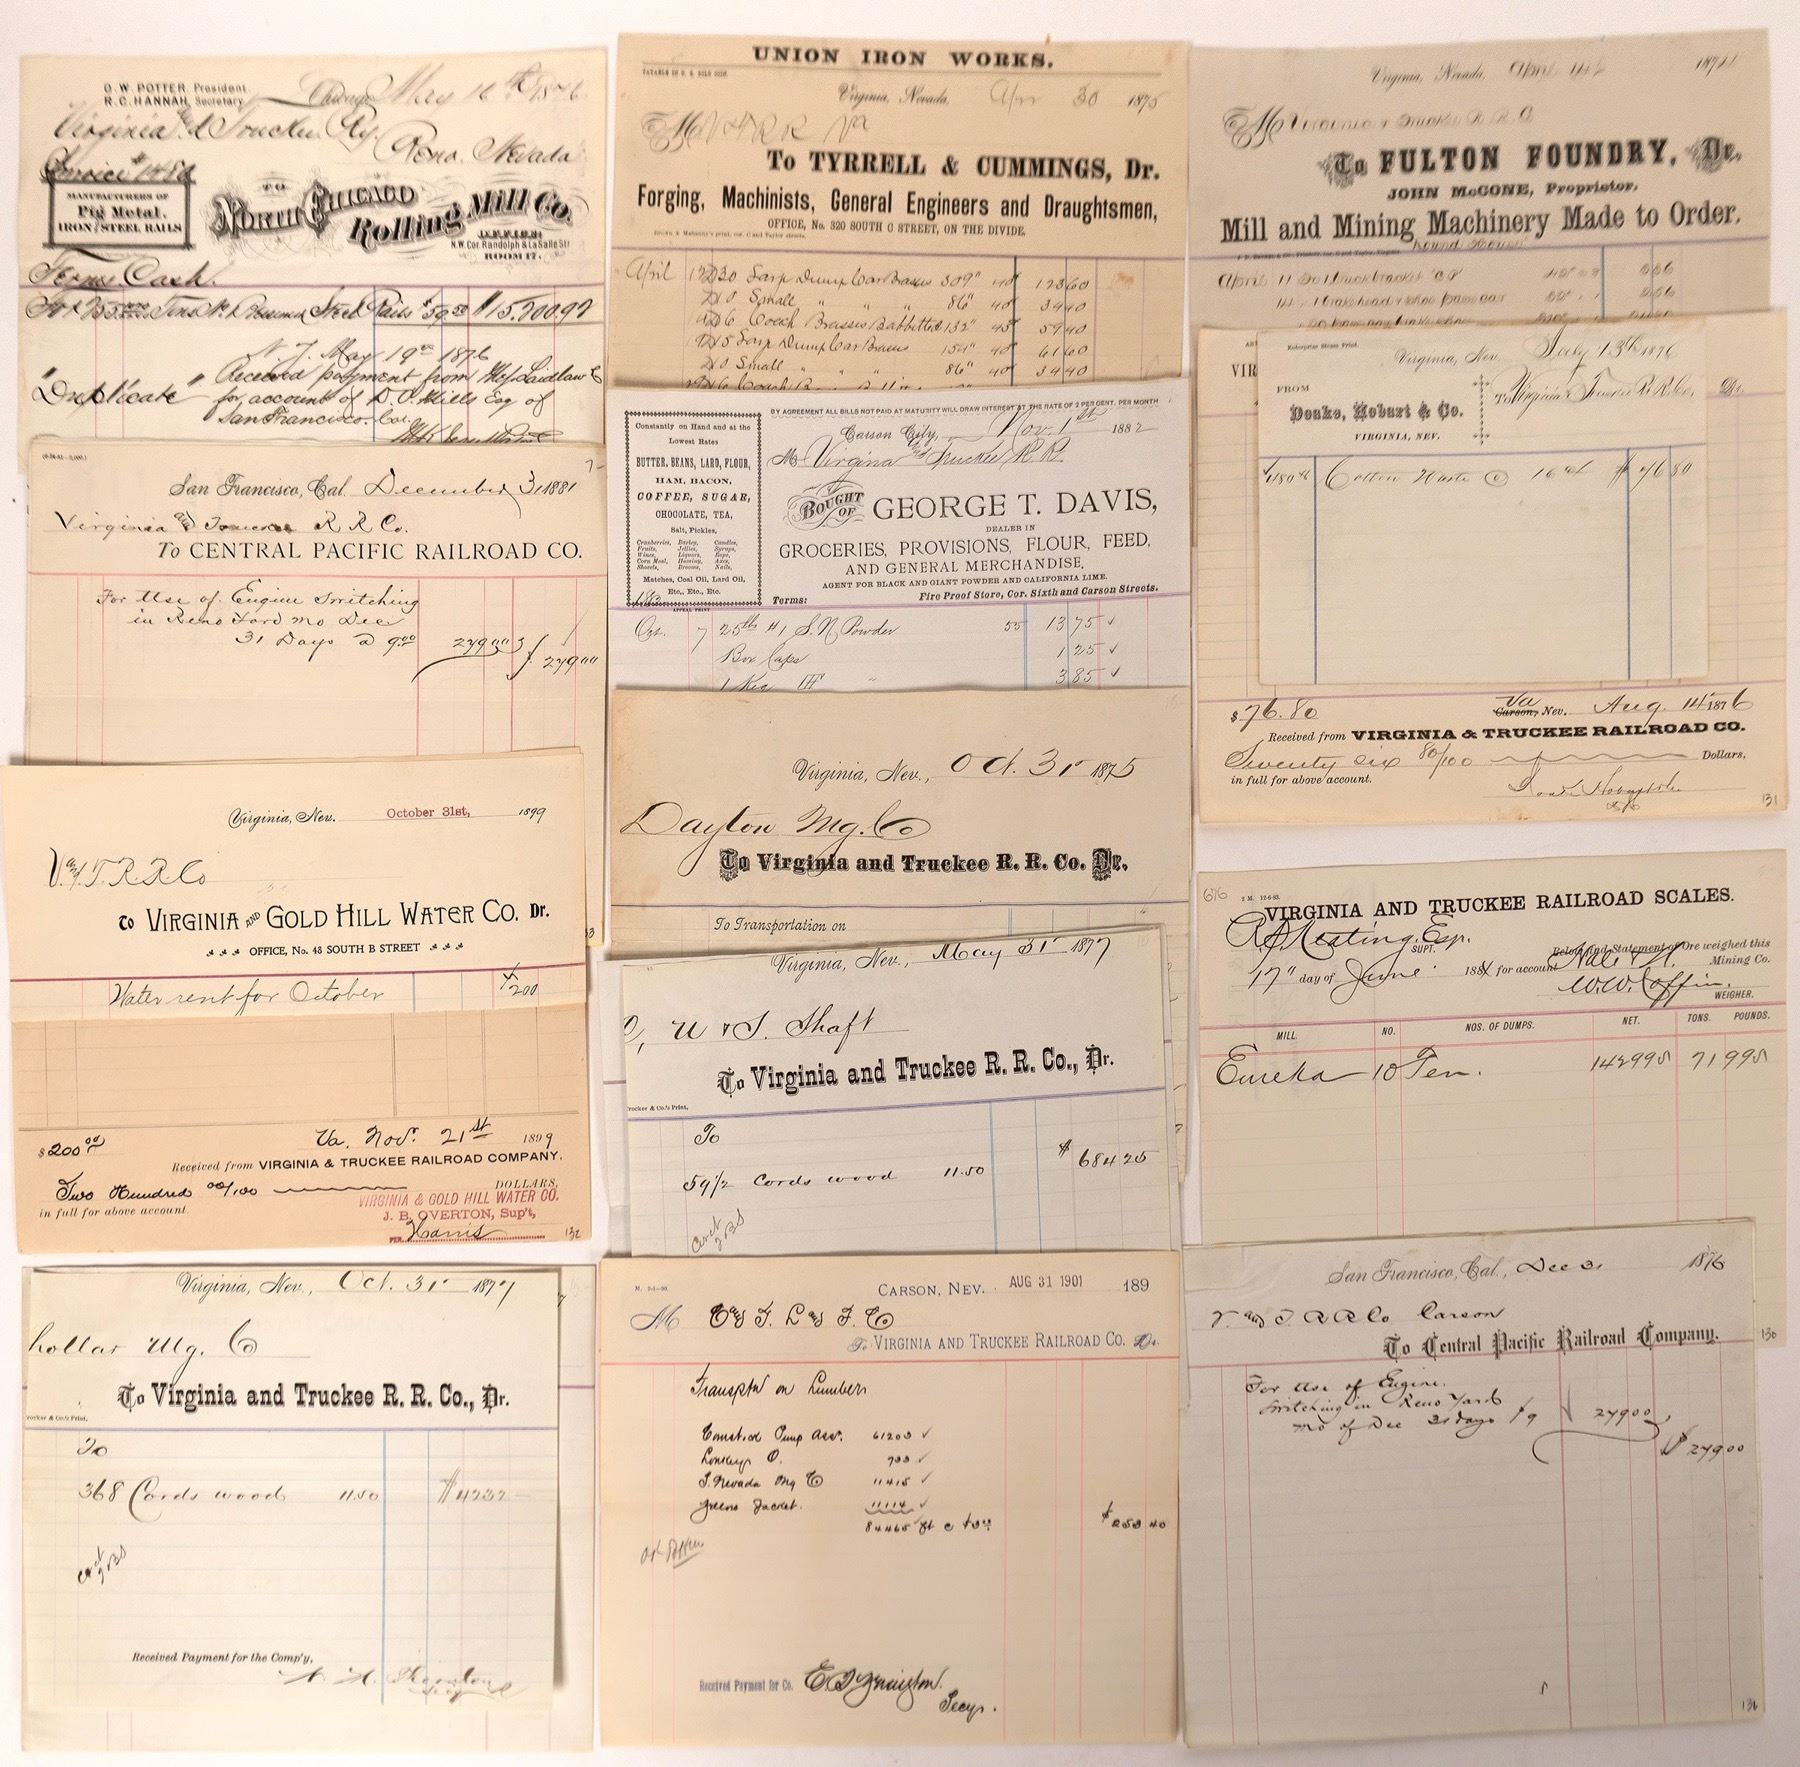 O. W. POTTER President
R. C. HANNAH, Secretary
Chicago May 16th 1876
Virginia & Truckee Ry.
Reno. Nevada
Invoice # 1480
MANUFACTURERS OF
Pig Metal.
IRON & STEEL RAILS
TO
NORTH CHICAGO
Rolling Mill Co.
OFFICE:
N.W. Cor. Randolph & La Salle Str
ROOM 17.
Terms Cash.
Tons
Bessemer Steel Rails
$15,200.92
N. Y. May 19th 1876
"Duplicate"
Received payment from
Laidlaw &
for account of D. O. Mills Esq of
San Francisco. Cal.
UNION IRON WORKS.
PAYABLE IN U. S. GOLD COIN.
Virginia, Nevada, Apr 30 1875
M V & T R R
To TYRRELL & CUMMINGS, Dr.
Forging, Machinists, General Engineers and Draughtsmen,
OFFICE, No. 320 SOUTH C STREET, ON THE DIVIDE.
April
Dump Car Brasses 309" 40 123 60
Small " " " 86" 40 34 40
Coach Brasses Babbitted 132" 45 59 40
Dump Car Brasses 154" 40 61 60
Small " " " 86" 40 34 40
Virginia, Nevada, April
M Virginia & Truckee R R Co
To FULTON FOUNDRY, Dr.
JOHN McCONE, Proprietor.
Mill and Mining Machinery Made to Order.
Round House
April 11
San Francisco, Cal. December 31 1881
Virginia and Truckee R R Co.
To CENTRAL PACIFIC RAILROAD CO.
For Use of Engine Switching
in Reno Yard mo Dec
31 Days @ 9.00 279 00
279 00
BY AGREEMENT ALL BILLS NOT PAID AT MATURITY WILL DRAW INTEREST AT THE RATE OF 2 PER CENT. PER MONTH
Constantly on Hand and at the
Lowest Rates
BUTTER, BEANS, LARD, FLOUR,
HAM, BACON,
COFFEE, SUGAR,
CHOCOLATE, TEA,
Salt, Pickles,
Cranberries, Barley, Candles,
Fruits, Jellies, Syrups,
Wines, Liquors, Rope,
Corn Meal, Hominy, Axes,
Shovels, Brooms, Nails,
Matches, Coal Oil, Lard Oil,
Etc., Etc., Etc.
APPEAL PRINT
Carson City, Nov. 1st 1882
M Virginia and Truckee R R.
BOUGHT OF GEORGE T. DAVIS,
DEALER IN
GROCERIES, PROVISIONS, FLOUR, FEED,
AND GENERAL MERCHANDISE,
AGENT FOR BLACK AND GIANT POWDER AND CALIFORNIA LIME.
Terms: Fire Proof Store, Cor. Sixth and Carson Streets.
Oct. 7 25 lbs #1 S. N. Powder 55 13 75
Box Caps 1 25
1 Keg 3 85
Enterprise Steam Print.
Virginia, Nev. July 13th 1876
FROM
Deake, Hobart & Co.
VIRGINIA, NEV.
To Virginia & Truckee R. R. Co, Dr.
Cotton Waste @ 16 $ 76 80
$76.80
Va Carson, Nev. Aug. 14th 1876
Received from VIRGINIA & TRUCKEE RAILROAD CO.
Seventy six 80/100 Dollars,
in full for above account.
131
Virginia, Nev. October 31st, 1899
V. and T. R. R. Co
To VIRGINIA AND GOLD HILL WATER CO. Dr.
OFFICE, No. 43 SOUTH B STREET
Water rent for October 200
$200 00
Va. Nov. 21st 1899
Received from VIRGINIA & TRUCKEE RAILROAD COMPANY.
Two Hundred 00/100 DOLLARS,
in full for above account.
VIRGINIA & GOLD HILL WATER CO.
J. B. OVERTON, Sup't,
PER Harris
132
Virginia, Nev., Oct. 31st 1875
Dayton Mg. Co
To Virginia and Truckee R. R. Co. Dr.
To Transportation on
Virginia, Nev., May 31st 1877
C, U & S. Shaft
To Virginia and Truckee R. R. Co., Dr.
To
59 1/2 Cords wood 11.50 $684 25
676
2 M. 12-6-83.
VIRGINIA AND TRUCKEE RAILROAD SCALES.
Keating, Esq.
SUPT.
Below find Statement of Ore weighed this
17" day of June 188 for account Hale & N. Mining Co.
W. W. Coffin. WEIGHER.
MILL. NO. NOS. OF DUMPS. NET. TONS. POUNDS.
Eureka 10 Ten. 142995 71 995
Virginia, Nev., Oct. 31st 1877
hollar Mg. Co
To Virginia and Truckee R. R. Co., Dr.
rocker & Co.'s Print,
To
368 Cords wood 11.50 $4232
Received Payment for the Comp'y,
CARSON, NEV. AUG 31 1901 189
M C and T. L and F. Co
To VIRGINIA AND TRUCKEE RAILROAD CO. Dr.
Transptn on Lumber
Comstock Pump Assn. 61203
S. Nevada Mg Co 11415
Greens Jacket. 11114
84465 ft @ $3.00 $253 40
Received Payment for Co. E. B. Yerington.
Secy.
San Francisco, Cal., Dec 31 1876
V. and T. R R Co Carson
To Central Pacific Railroad Company.
130
For Use of Engine.
Switching in Reno Yard
mo of Dec 31 days $9 279 00
$279 00
136